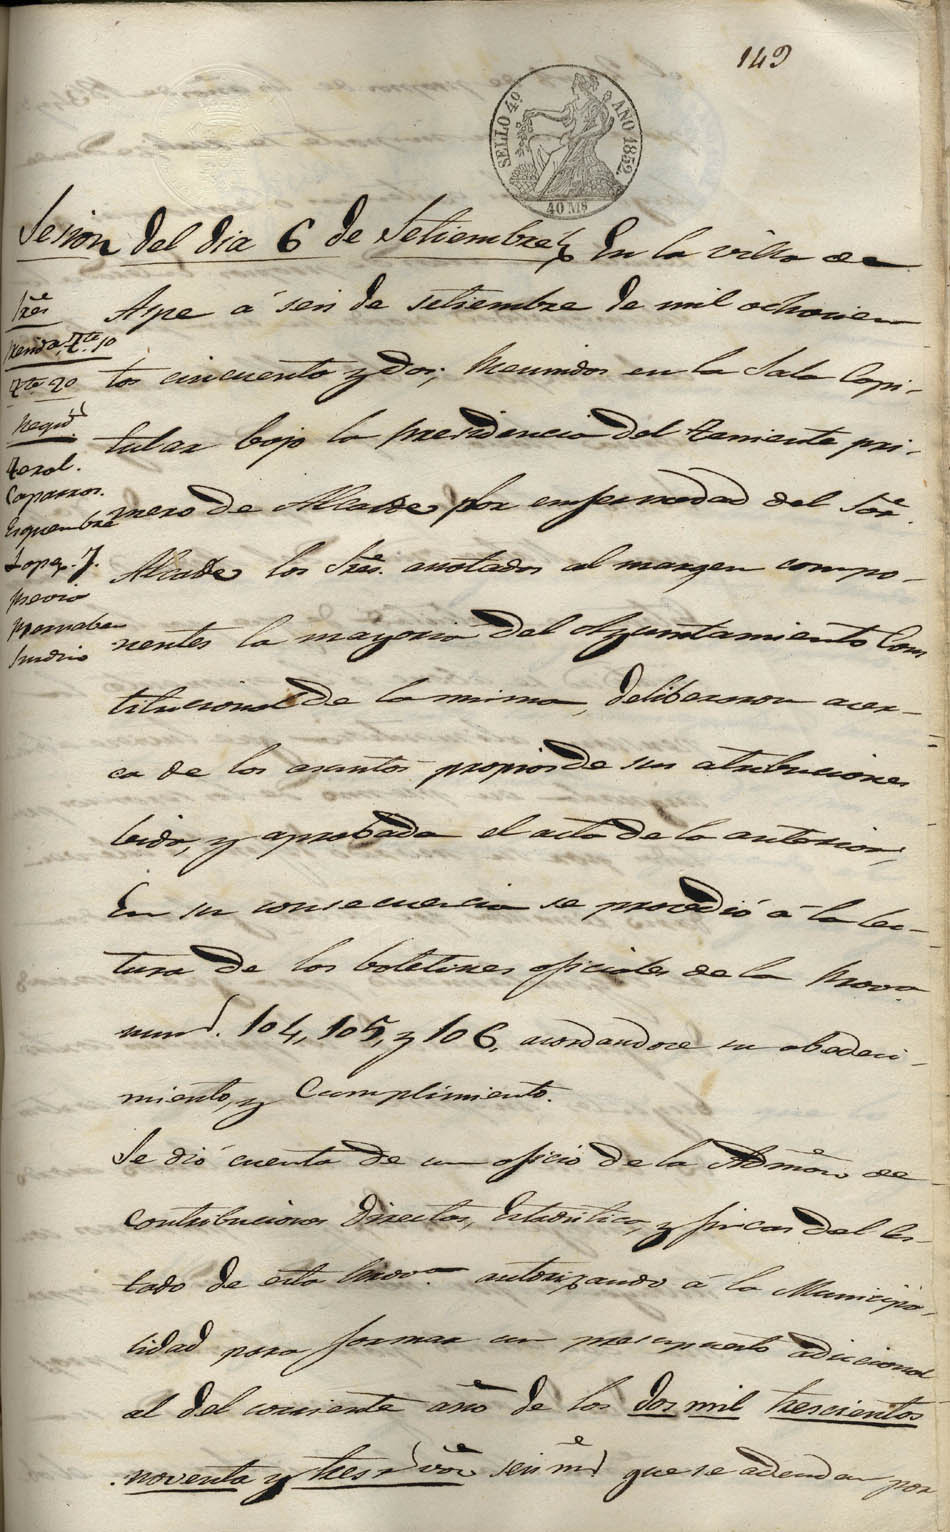 149
SELLO 4º AÑO 1852.
40 Ms
Sesion del dia 6 de Setiembre En la villa de
Aspe á seis de setiembre de mil ochocien
tos cincuenta y dos; Reunidos en la Sala Capi-
tular bajo la presidencia del Teniente pri-
mero de Alcalde, por enfermedad del Sor.
Alcalde los Sres. anotados al margen compo-
nentes la mayoria del Ayuntamiento Cons
titucional de la misma, deliberaron acer-
ca de los asuntos propios de sus atribuciones
leida, y aprobada el acta de la anterior,
En su consecuencia se procedió á la lec-
tura de los boletines oficiales de la Prova.
num.s 104, 105, y 106, acordandose su obedeci-
miento, y Cumplimiento.
Se dió cuenta de un oficio de la Admon de
Contribuciones Directas, Estadistica, y fincas del Es-
tado de esta Prova. autorizando á la Municipa-
lidad para formar un presupuesto adicional
al del corriente año de los dos mil trescientos
noventa y tres rs von seis ms que se adeudan por
Sres
Tte 1º
Tte 2º
Regid.s
Terol.
Caparros.
Esquembre
Lopez. J.